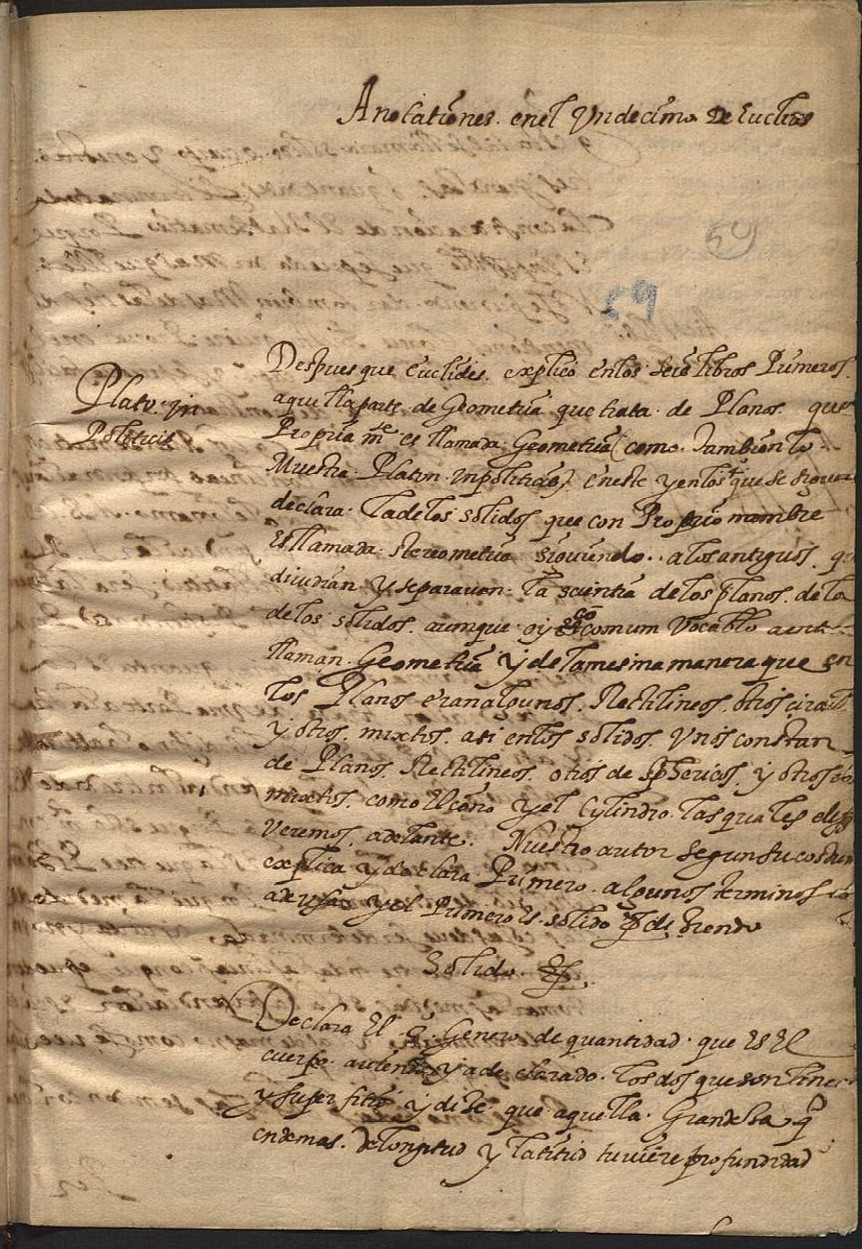 Anotationes. en el Undecimo De Euclides
59
59
Platon. in
Politicis
Despues que Euclides. explicó en los seis libros Primeros.
aquella parte de Geometria que trata. de Planos. que
Propria mte es llamada. Geometria (como. tambien lo
Muestra. Platon. in politicis) en este y en los que se siguen
declara. la de los solidos que con Proprio nombre
es llamada. stereometria siguiendo. a los antiguos. q
dividian y separavan. la scientia de los planos. de la
de los solidos. aunque oy co comum vocablo
llaman. Geometria y de la mesma manera que en
los Planos eran algunos. Rectilineos. otros
y otros. mixtos. asi en los solidos. unos constan
de Planos. Rectilineos. otros de Sphericos y otros
mixtos. como El cono y el Cylindro. las quales
veremos. adelante. Nuestro autor segun su
explica y declara. Primero. algunos terminos
y el Primero es. solido diziendo
Solido. &.
Declara El 3º. Genero. de quantidad. que es El
cuerpo. aviendo ya declarado. los dos que son
y superfitie y dize. que aquella. Grandeza. q
endemas. de longitud y latitud tuviere profundidad